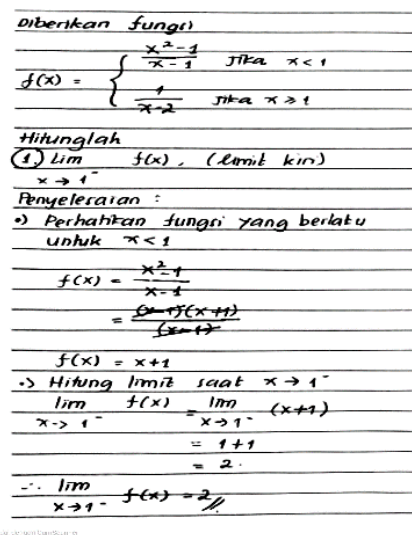 Diberikan fungsi
f(x) = { x² - 1 / x - 1 jika x < 1
1 / x - 2 jika x ≥ 1
Hitunglah
① Lim f(x). (limit kiri)
x → 1⁻
Penyelesaian :
•) Perhatikan fungsi yang berlaku
untuk x < 1
f(x) = x² - 1 / x - 1
= (x - 1)(x + 1) / (x - 1)
f(x) = x + 1
•) Hitung limit saat x → 1⁻
lim f(x) = lim (x + 1)
x -> 1⁻ x → 1⁻
= 1 + 1
= 2.
∴ lim f(x) = 2 //
x → 1⁻